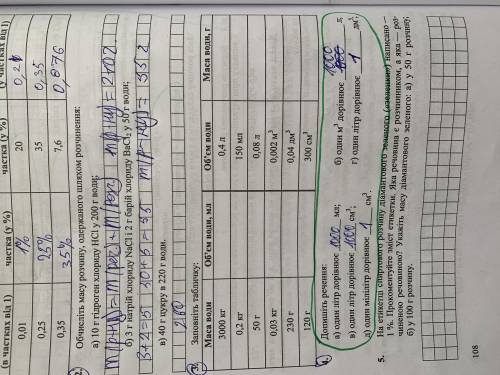 (в частках від 1) частка (у %) частка (у %) (у частках від 1)
0,01 1% 20 0,2
0,25 25% 35 0,35
0,35 35% 7,6 0,076
2. Обчисліть масу розчину, одержаного шляхом розчинення:
а) 10 г гідроген хлориду HCl у 200 г води;
m(р-ну) = m(реч) + m(роз) m(р-ну) = 210 г
б) 3 г натрій хлориду NaCl і 2 г барій хлориду BaCl₂ у 50 г води;
3+2=5 50+5=55 m(р-ну) = 55 г
в) 40 г цукру в 220 г води.
260
3. Заповніть табличку:
Маса води Об'єм води, мл Об'єм води Маса води, г
3000 кг 0,4 л
0,2 кг 150 мл
50 г 0,08 л
0,03 кг 0,002 м³
230 г 0,04 дм³
120 г 300 см³
4. Допишіть речення:
а) один літр дорівнює 1000 мл; б) один м³ дорівнює 1000 л;
в) один літр дорівнює 1000 см³; г) один літр дорівнює 1 дм³;
д) один мілілітр дорівнює 1 см³.
5. На етикетці спиртового розчину діамантового зеленого (зеленки) написано —
1 %. Прокоментуйте зміст етикетки. Яка речовина є розчинником, а яка — роз-
чиненою речовиною? Укажіть масу діамантового зеленого: а) у 50 г розчину;
б) у 100 г розчину.
108